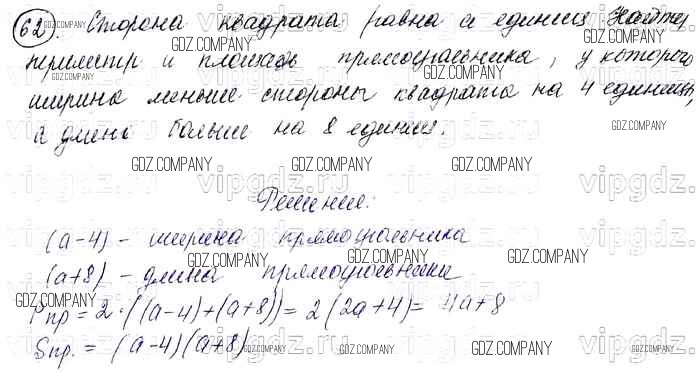 62. Сторона квадрата равна а единиц. Найдите
периметр и площадь прямоугольника, у которого
ширина меньше стороны квадрата на 4 единицы,
а длина больше на 8 единиц.
Решение:
(a-4) - ширина прямоугольника
(a+8) - длина прямоугольника
Pпр = 2·((a-4)+(a+8)) = 2(2a+4) = 4a+8
Sпр. = (a-4)(a+8)
GDZ.COMPANY
vipgdz.ru